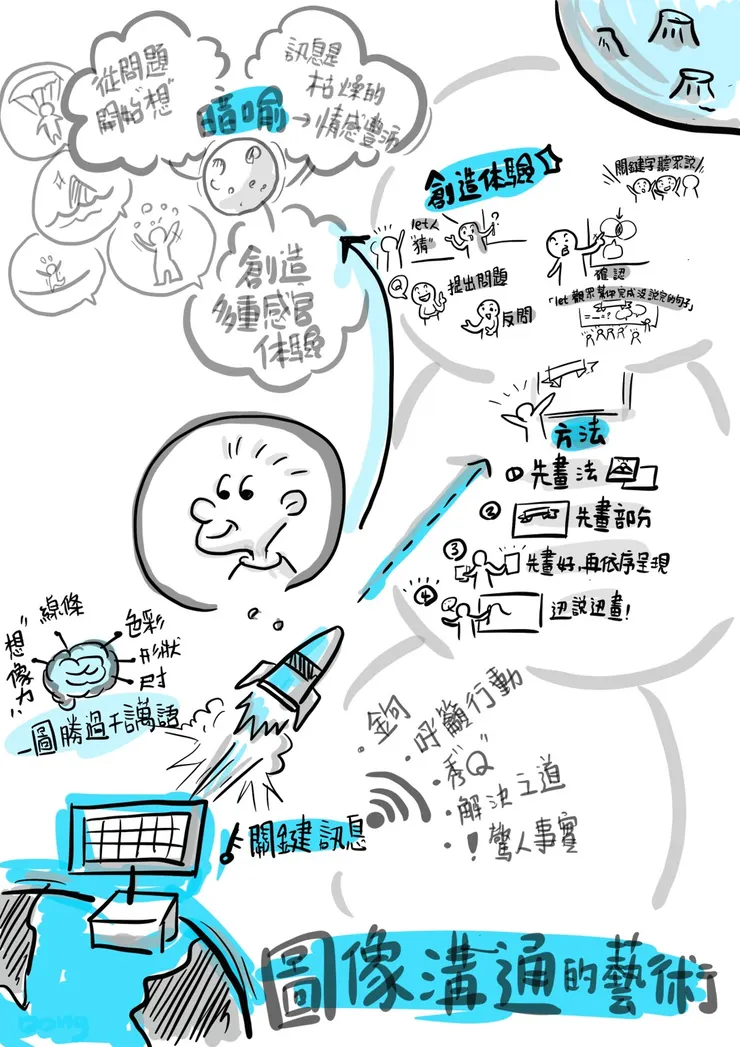 從問題
開始"想"
訊息是
枯燥的
→情感豐沛
暗喻
創造
多重感官
体驗
創造体驗
關鍵字聽眾說
let人
"猜"
Q
提出問題
反問
確認
「let 觀眾幫你完成沒說完的句子」
方法
① 先畫法
② 先畫部分
③ 先畫好,再依序呈現
④ 边説边畫!
"想像力"
線條
色彩
形狀
尺寸
一圖勝過千言萬語
關鍵訊息
·鉤
·呼籲行動
·秀"Q"
·解決之道
·!驚人事實
圖像溝通的藝術
Dong